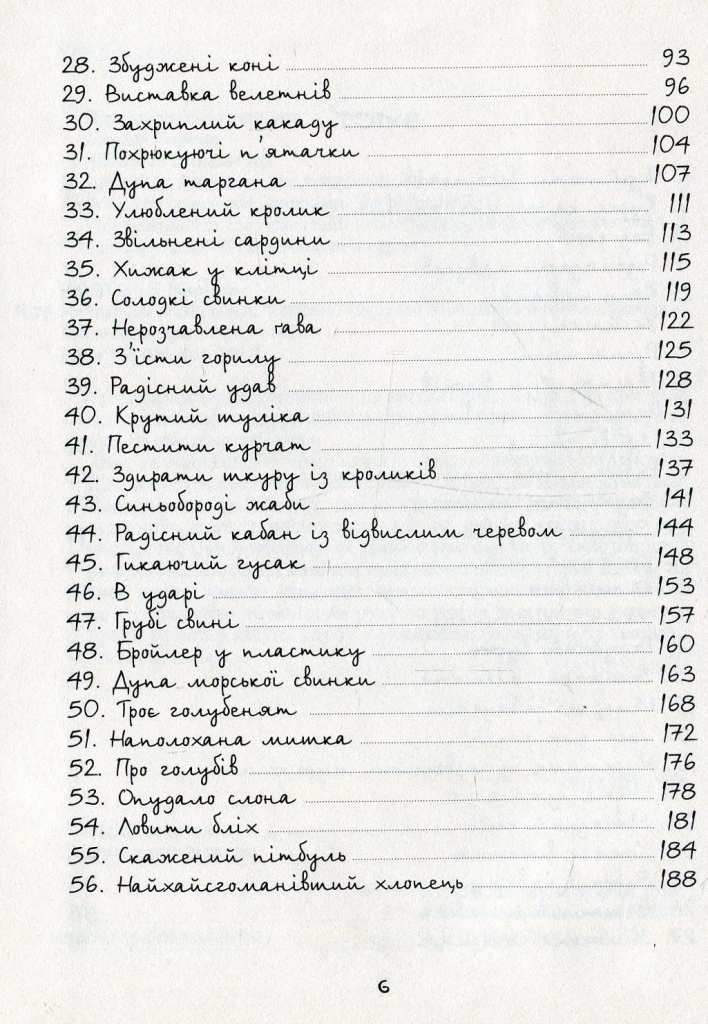 28. Збуджені коні 93
29. Виставка велетнів 96
30. Захриплий какаду 100
31. Похрюкуючі п'ятачки 104
32. Дупа таргана 107
33. Улюблений кролик 111
34. Звільнені сардини 113
35. Хижак у клітці 115
36. Солодкі свинки 119
37. Нерозчавлена ґава 122
38. З'їсти горилу 125
39. Радісний удав 128
40. Крутий туліка 131
41. Пестити курчат 133
42. Здирати шкуру із кроликів 137
43. Синьобороді жаби 141
44. Радісний кабан із відвислим черевом 144
45. Гикаючий гусак 148
46. В ударі 153
47. Грубі свині 157
48. Бройлер у пластику 160
49. Дупа морської свинки 163
50. Троє голубенят 168
51. Наполохана мишка 172
52. Про голубів 176
53. Опудало слона 178
54. Ловити бліх 181
55. Скажений пітбуль 184
56. Найхайсгоманівший хлопець 188
6